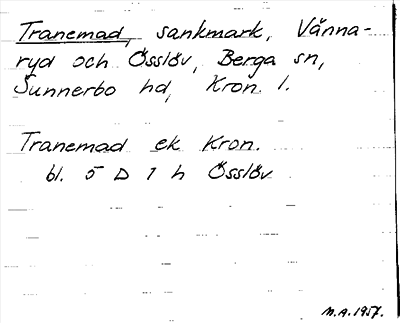 Tranemad, sankmark, Vänna-
ryd och Össlöv, Berga sn,
Sunnerbo hd, Kron. l.
Tranemad ek Kron.
bl. 5 D 1 h Össlöv
M.A. 1957.